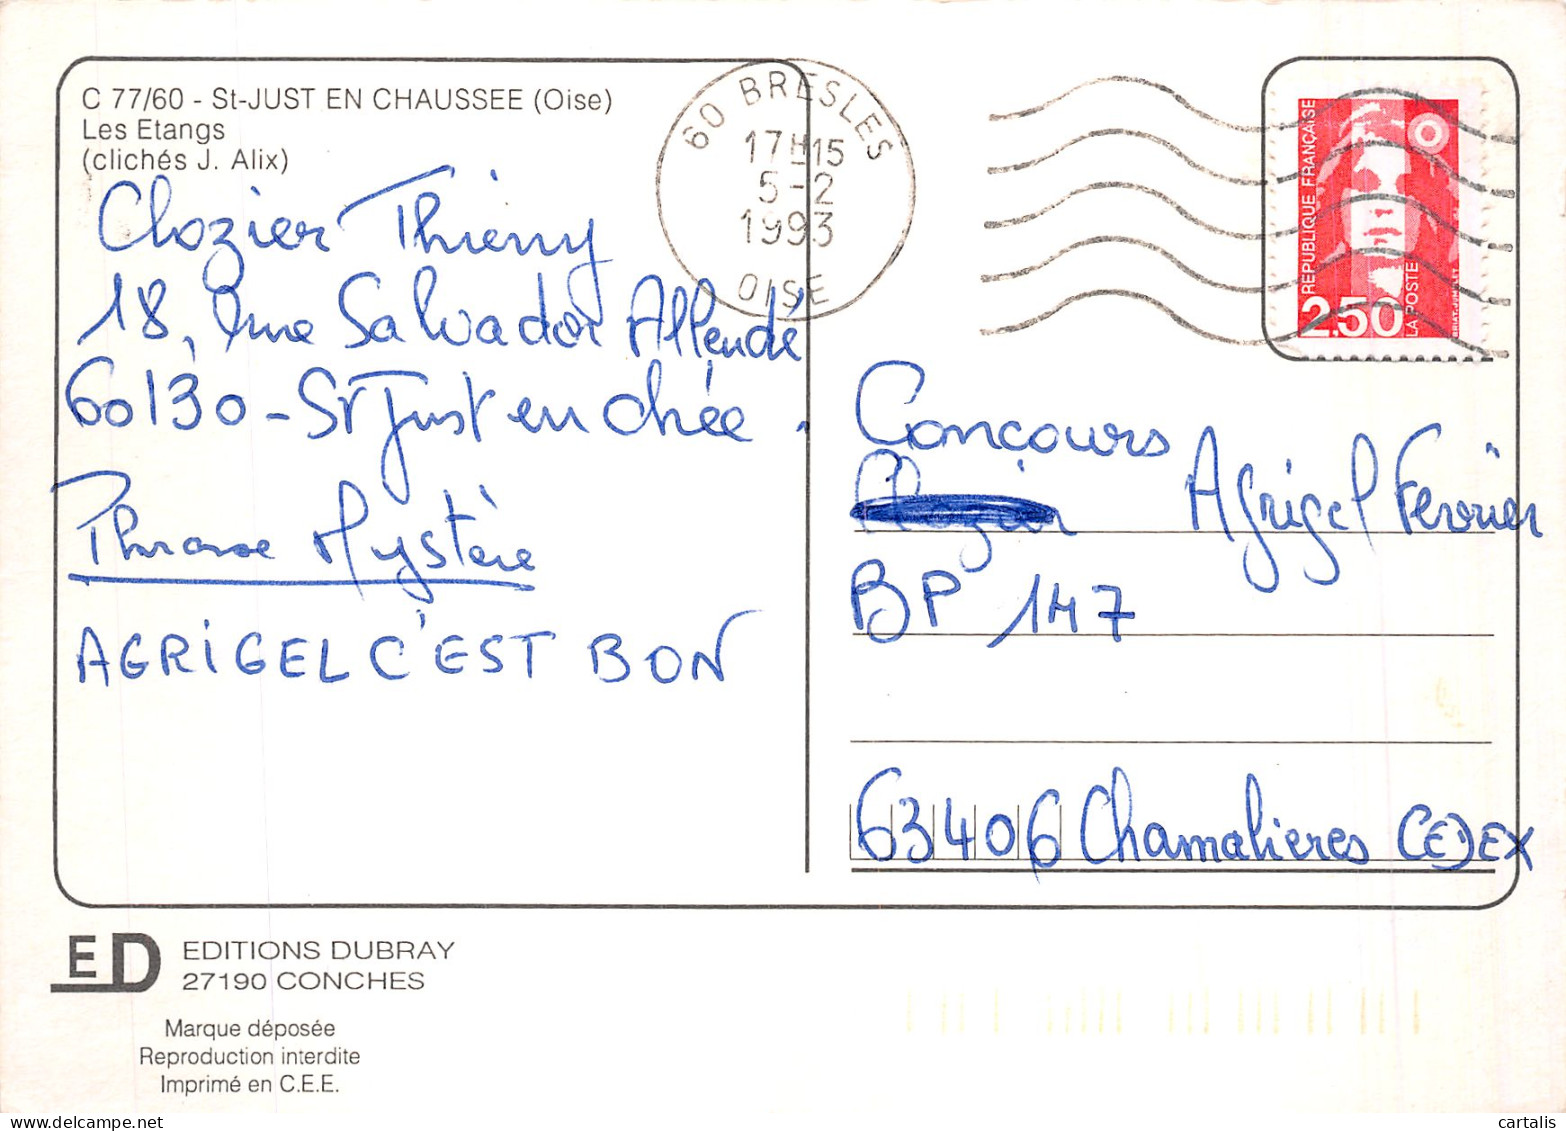 C 77/60 - St-JUST EN CHAUSSEE (Oise)
Les Etangs
(clichés J. Alix)
Clozier Thierry
18, Rue Salvador Allendé
60130 - St Just en chée.
Phrase Mystère
AGRIGEL C'EST BON
60 BRESLES
17H15
5-2
1993
OISE
REPUBLIQUE FRANÇAISE
2,50
LA POSTE
Concours
Agrigel Fevrier
BP 147
63406 Chamalieres CEDEX
ED
EDITIONS DUBRAY
27190 CONCHES
Marque déposée
Reproduction interdite
Imprimé en C.E.E.
cartalis